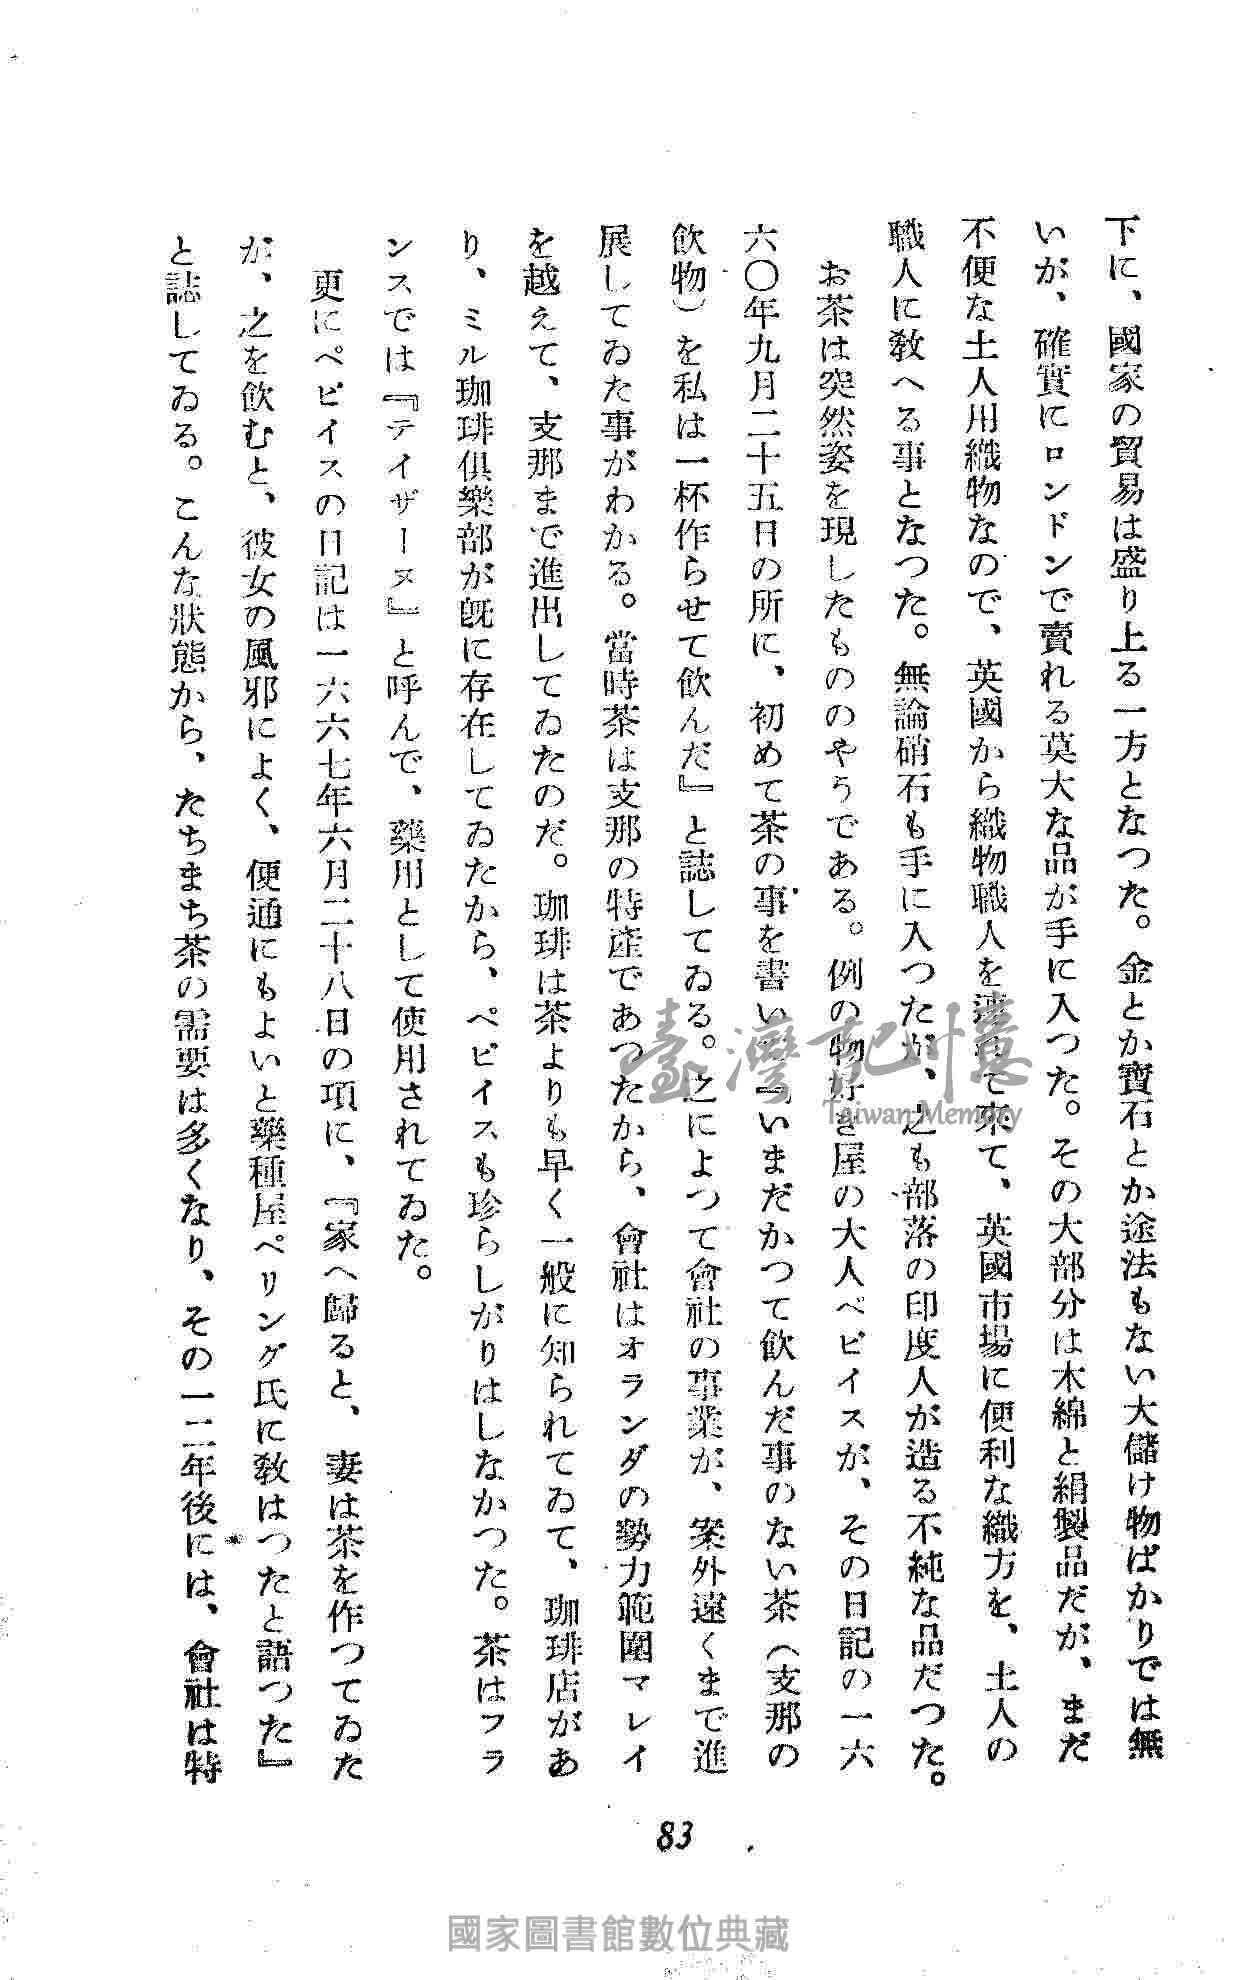 下に、國家の貿易は盛り上る一方となつた。金とか寶石とか途法もない大儲け物ばかりでは無
いが、確實にロンドンで賣れる莫大な品が手に入つた。その大部分は木綿と絹製品だが、まだ
不便な土人用織物なので、英國から織物職人を連れて來て、英國市場に便利な織方を、土人の
職人に敎へる事となつた。無論硝石も手に入つたが、之も部落の印度人が造る不純な品だつた。
お茶は突然姿を現したもののやうである。例の物好き屋の大人ペピイスが、その日記の一六
六〇年九月二十五日の所に、初めて茶の事を書いて『いまだかつて飲んだ事のない茶（支那の
飲物）を私は一杯作らせて飲んだ』と誌してゐる。之によつて會社の事業が、案外遠くまで進
展してゐた事がわかる。當時茶は支那の特產であつたから、會社はオランダの勢力範圍マレイ
を越えて、支那まで進出してゐたのだ。珈琲は茶よりも早く一般に知られてゐて、珈琲店があ
り、ミル珈琲俱樂部が既に存在してゐたから、ペピイスも珍らしがりはしなかつた。茶はフラ
ンスでは『テイザーヌ』と呼んで、藥用として使用されてゐた。
更にペピイスの日記は一六六七年六月二十八日の項に、『家へ歸ると、妻は茶を作つてゐた
が、之を飲むと、彼女の風邪によく、便通にもよいと藥種屋ペリング氏に敎はつたと語つた』
と誌してゐる。こんな狀態から、たちまち茶の需要は多くなり、その一二年後には、會社は特
83
臺灣記憶
Taiwan Memory
國家圖書館數位典藏